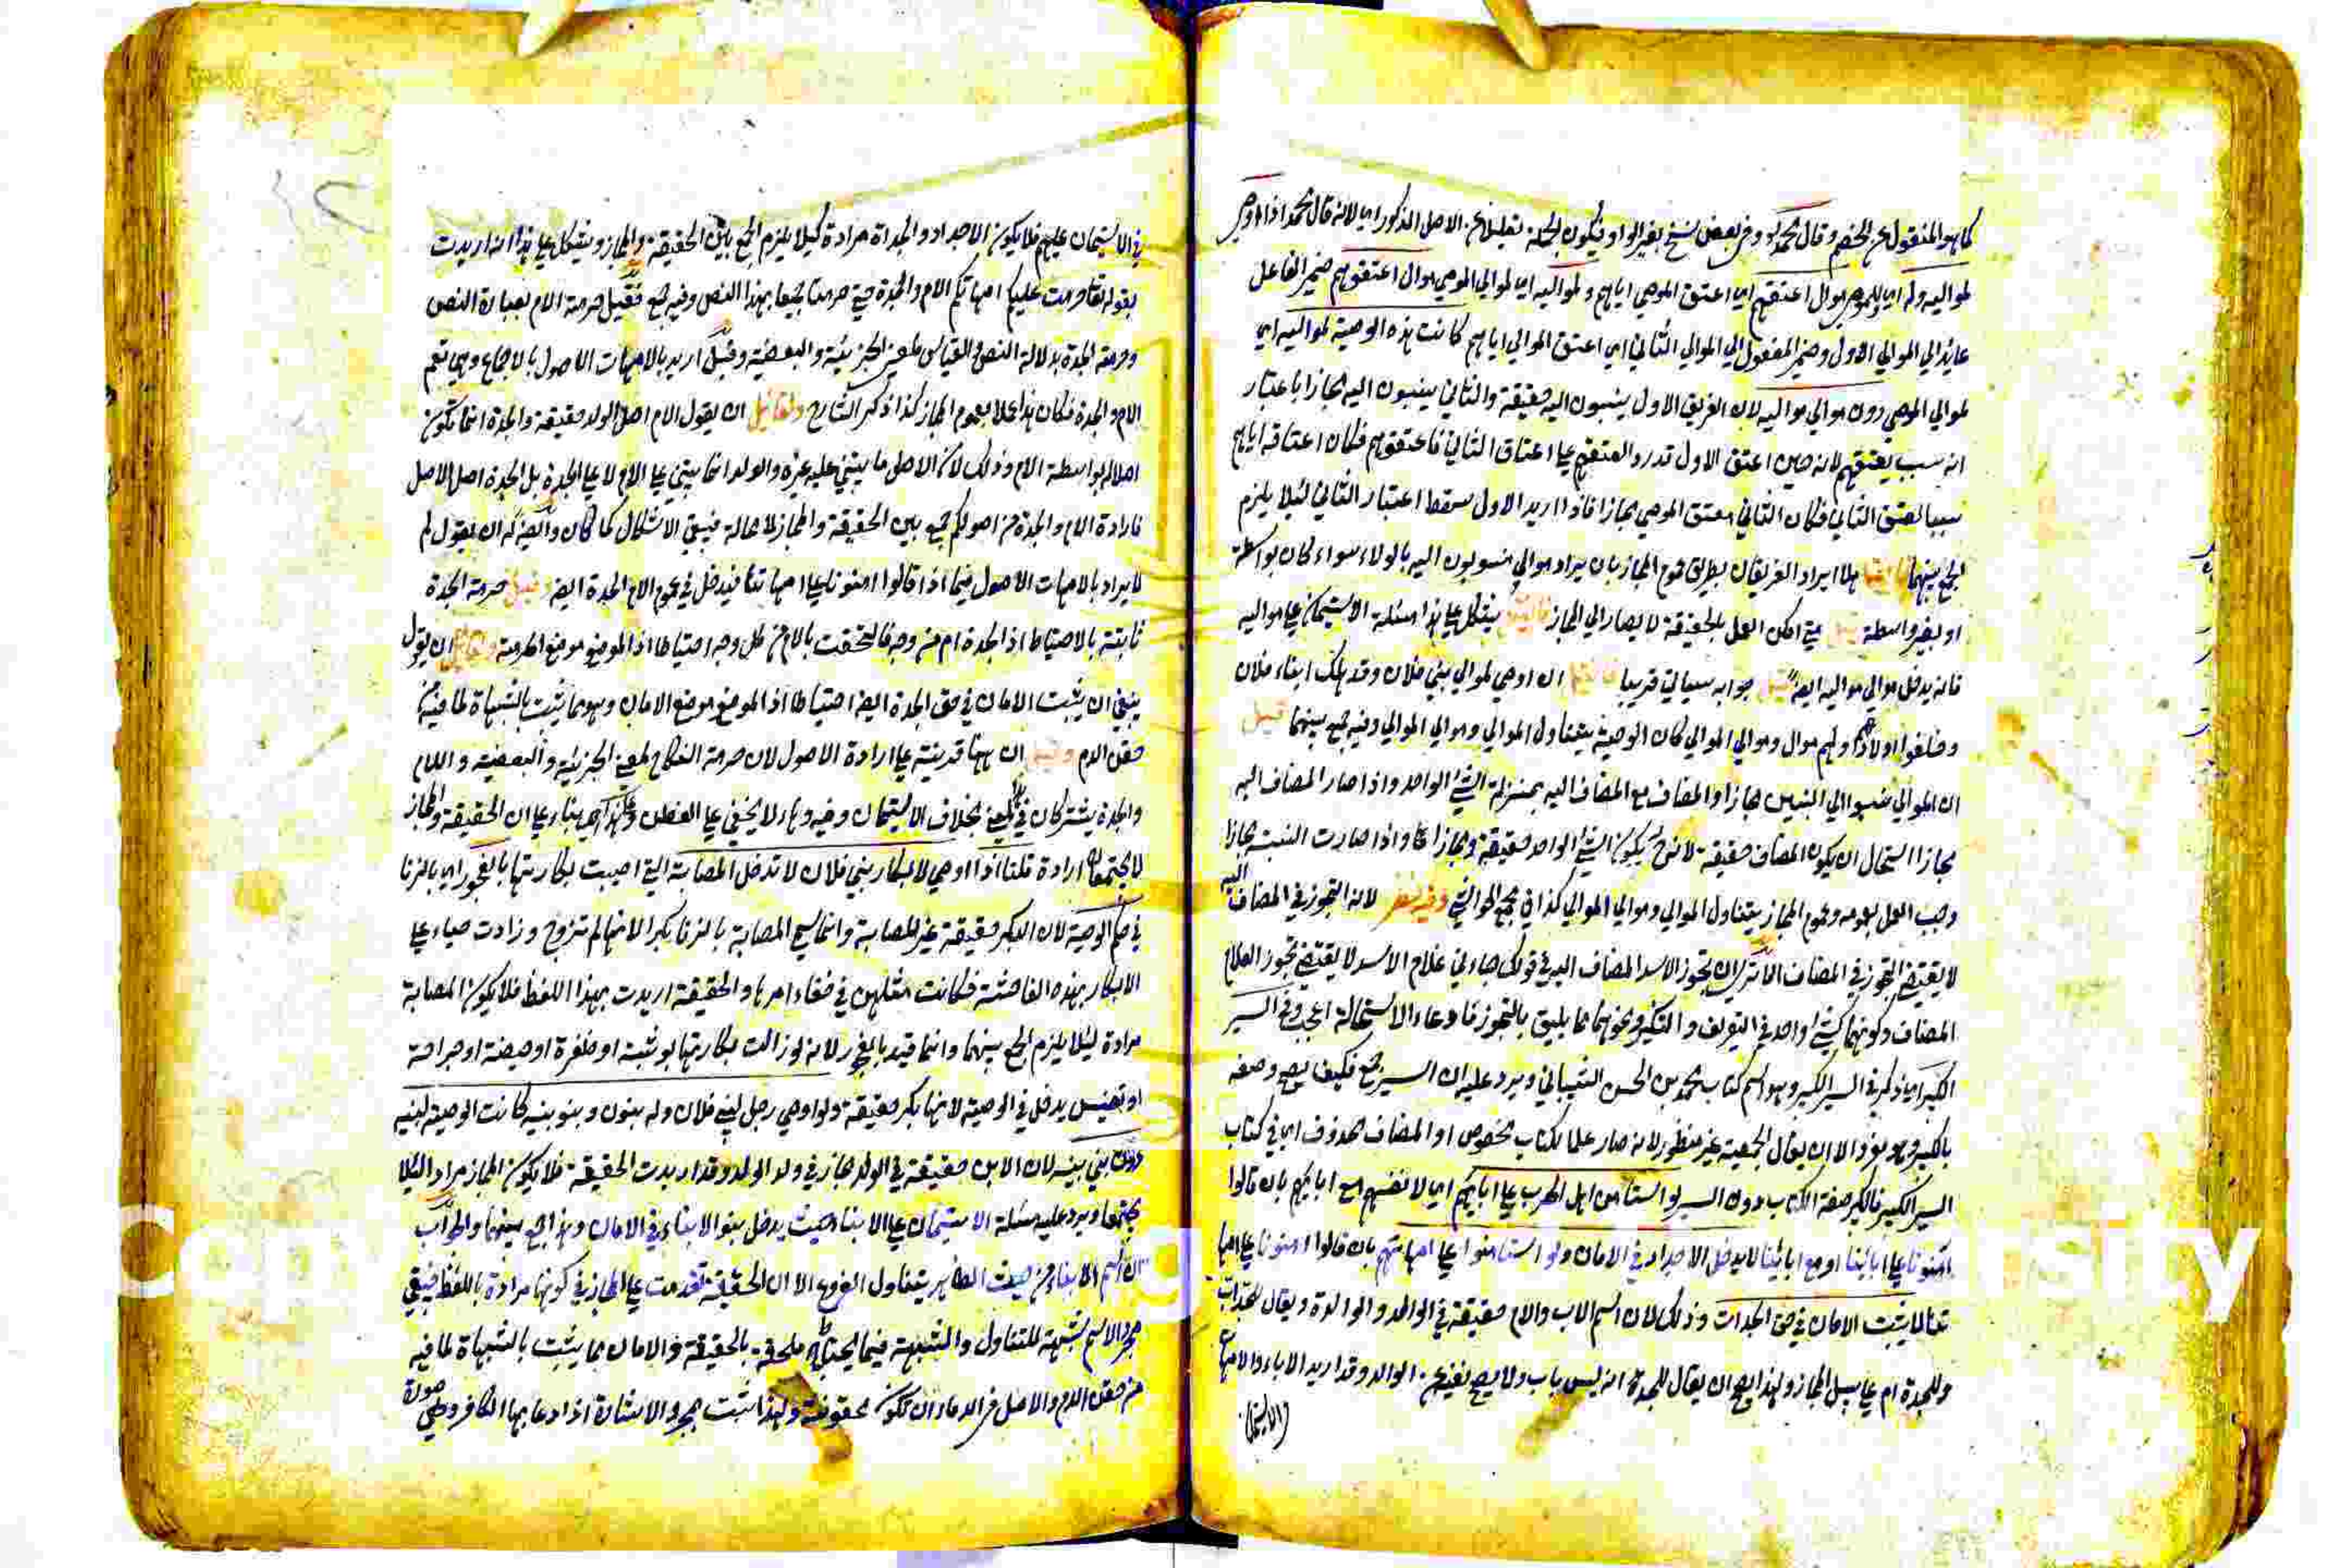 كما هو المنقول عن الخصم وقال محمد وفي بعض نسخ بغير الواو فيكون الجملة تعليلا عن الاصل المذكور اي لانه قال محمد اذا اوصى
لمواليه وله اي للموصي موال اعتقهم اي اعتق الموصي اياهم ولمواليه اي لموالي الموصي موال اعتقوهم ضمير الفاعل
عايد الي الموالي الاول وضمير المفعول الي الموالي الثاني اي اعتق الموالي اياهم كانت هذه الوصية لمواليه اي
لموالي الموصي دون موالي مواليه لان الفريق الاول ينسبون اليه حقيقة والثاني ينسبون اليه مجازا باعتبار
انه سبب لعتقهم لانه حين اعتق الاول قدر المعتقهم علي اعتاق الثاني فاعتقوهم فكان اعتاقه اياهم
سببا لعتق الثاني فكان الثاني معتق الموصي مجازا فاذا اريد الاول سقط اعتبار الثاني لئلا يلزم
الجمع بينهما هلا يراد الفريقان بطريق عموم المجاز بان يراد موالي منسوبون اليه بالولاء سواء كان بواسطة
او بغير واسطة متي امكن العمل بالحقيقة لا يصار الي المجاز يشكل علي هذا مسئلة الاستيمان علي مواليه
فانه يدخل موالي مواليه ايضا قيل جوابه سياتي قريبا ان اوصي لموالي بني فلان وقد هلك ابناء فلان
وخلفوا اولادا ولهم موال وموالي الموالي كان الوصية يتناول الموالي وموالي الموالي وفيه جمع بينهما قيل
ان الموالي نسبوا الي البنين مجازا والمضاف مع المضاف اليه بمنزلة الشئ الواحد واذا صار المضاف اليه
مجازا استحال ان يكون المضاف حقيقة لانه ح يكون الشئ الواحد حقيقة ومجازا معا واذا صارت النسبة مجازا
وجب العمل بعمومه وعموم المجاز يتناول الموالي وموالي الموالي كذا في مجمع الحواشي وفيه نظر لانه التجوز في المضاف اليه
لا يقتضي التجوز في المضاف الا تري ان تجوز الاسد المضاف اليه في قولك جاءني غلام الاسد لا يقتضي تجوز الغلام
المضاف وكونهما كشئ واحد في التعريف والتنكير ونحوهما مما يليق بالتجوز فادعاء الاستحالة اعجب وفي السير
الكبير اي ذكر في السير الكبير وهو اسم كتاب محمد بن الحسن الشيباني ويرد عليه ان السير جمع فكيف يصح وصفه
بالكبير وهو مفرد الا ان يقال الجمعية غير منظور لانه صار علما لكتاب مخصوص او المضاف محذوف اي في كتاب
السير الكبير فالكبير صفة الكتاب دون السير لو استامن اهل الحرب علي ابائهم اي لانفسهم مع ابائهم بان قالوا
امنونا علي ابائنا او مع ابائنا لا يدخل الاجداد في الامان ولو استامنوا علي امهاتهم بان قالوا امنونا علي امها
تنا لا يثبت الامان في حق الجدات وذلك لان اسم الاب والام حقيقة في الوالد والوالدة ويقال للجد اب
وللجدة ام علي سبيل المجاز ولهذا يصح ان يقال للجد انه ليس باب ولا يصح نفيه عن الوالد وقد اريد الاباء والامهات
في الاستيمان عليهم فلا يكون الاجداد والجدات مرادة كيلا يلزم الجمع بين الحقيقة والمجاز ويشكل علي هذا انه اريدت
بقوله تعا حرمت عليكم امهاتكم الام والجدة حتي حرمتا جميعا بهذا النص وفيه جمع فقيل حرمة الام بعبارة النص
وحرمة الجدة بدلالة النص والقياس لمعني الجزئية والبعضية وقيل اريد بالامهات الاصول بالاجماع وهي تعم
الام والجدة فكان هذا عملا بعموم المجاز كذا ذكر الشارح ولقائل ان يقول الام اصل الولد حقيقة والجدة انما تكون
اصلا له بواسطة الام وذلك لان الاصل ما يبتني عليه غيره والولد انما يبتني علي الام لا علي الجدة بل الجدة اصل الاصل
فارادة الام والجدة من اصولكم جمع بين الحقيقة والمجاز لا محالة فيبقي الاشكال كما كان وايضا له ان يقول لم
لا يراد بالامهات الاصول فيما اذا قالوا امنونا علي امهاتنا فيدخل في عموم الام الجدة ايضا وقيل حرمة الجدة
ثابتة بالاحتياط اذ الجدة ام من وجه فالتحقت بالام من كل وجه احتياطا اذ الموضع موضع الحرمة ان يقول
ينبغي ان يثبت الامان في حق الجدة ايضا احتياطا اذ الموضع موضع الامان وهو مما يثبت بالشبهات لما فيه من
حقن الدم ان ههنا قرينة علي ارادة الاصول لان حرمة النكاح لمعني الجزئية والبعضية والام
والجدة يشتركان في المعني بخلاف الاستيمان وفيه ما لا يخفي علي الفطن بناء علي ان الحقيقة والمجاز
لا يجتمعان ارادة قلنا اذا اوصي لابكار بني فلان لا تدخل المصابة التي اصيبت بكارتها بالفجور اي بالزنا
في حكم الوصية لان البكر حقيقة غير المصابة وانما سمي المصابة بالزنا بكرا لانها لم تزوج وزادت حياء علي
الابكار بهذه الفاحشة فكانت مثلهن في خفاء امرها والحقيقة اريدت بهذا اللفظ فلا يكون المصابة
مرادة لئلا يلزم الجمع بينهما وانما قيد بالفجور لانه لو زالت بكارتها بوثبة او ظفرة او حيضة او جراحة
او تعنيس يدخل في الوصية لانها بكر حقيقة ولو اوصي رجل لبني فلان وله بنون وبنو بنيه كانت الوصية لبنيه
دون بني بنيه لان الابن حقيقة في الولد مجاز في ولد الولد وقد اريدت الحقيقة فلا يكون المجاز مرادا لئلا
يجتمعا ويرد عليه مسئلة الاستيمان علي الابناء حيث يدخل بنو الابناء في الامان وهذا جمع بينهما والجواب
ان اسم الابناء من حيث الظاهر يتناول الفروع الا ان الحقيقة تقدمت علي المجاز في كونها مرادة باللفظ فيبقي
مجرد الاسم شبهة للتناول والشبهة فيما يحتاط ملحقة بالحقيقة والامان مما يثبت بالشبهات لما فيه
من حقن الدم والاصل في الدماء ان تكون محقونة ولهذا يثبت بمجرد الاشارة اذا دعا بها الكافر وهي صورة